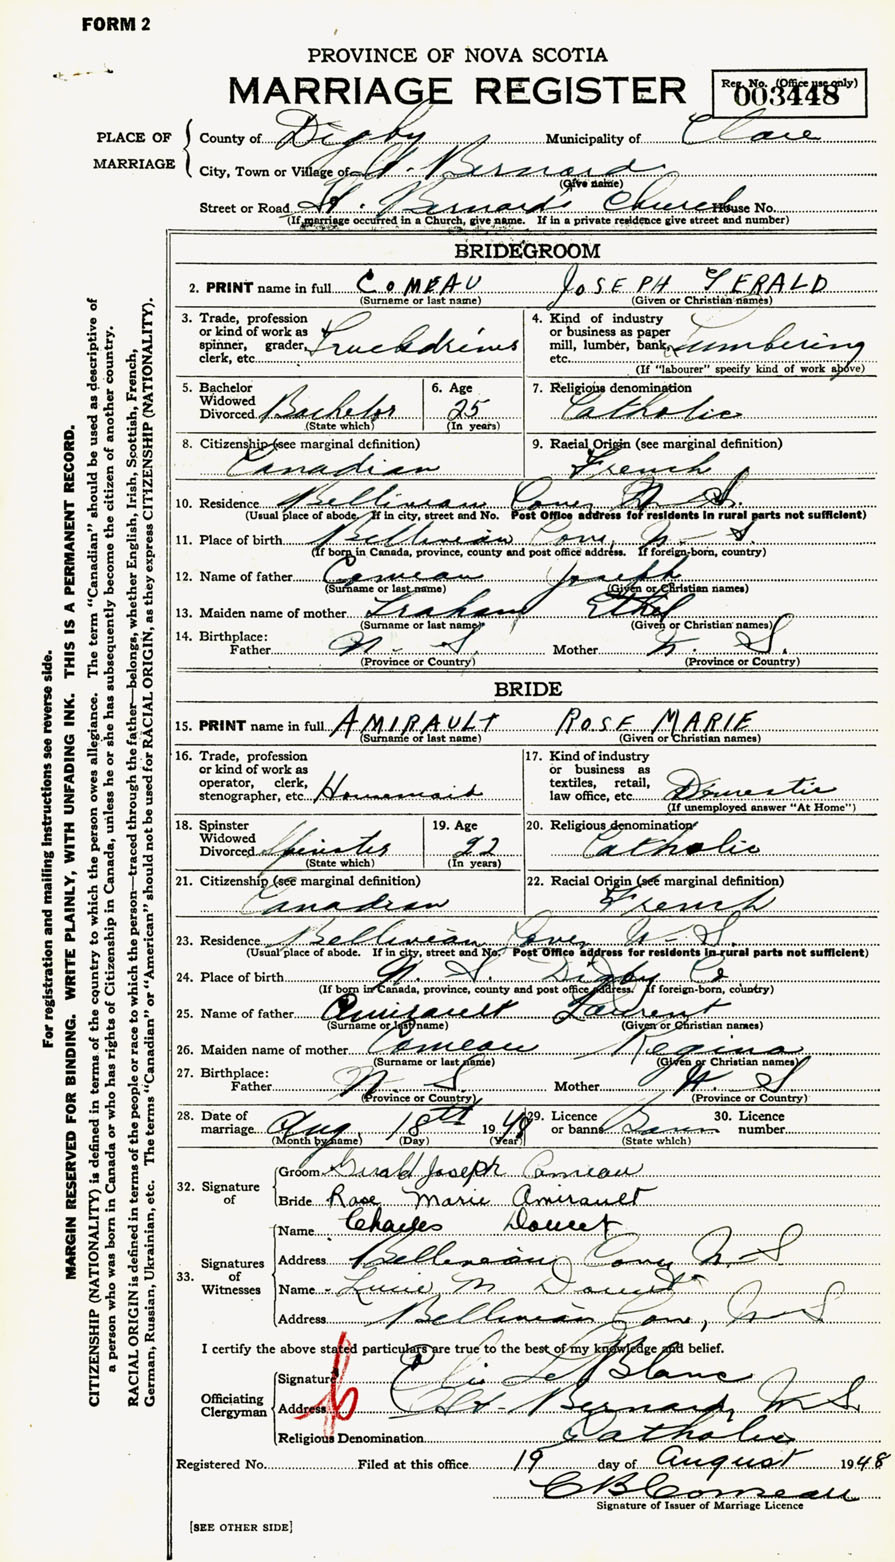 FORM 2
PROVINCE OF NOVA SCOTIA
MARRIAGE REGISTER
Reg. No. (Office use only)
003448
PLACE OF MARRIAGE
County of Digby Municipality of Clare
City, Town or Village of St. Bernard
(Give name)
Street or Road St. Bernard's Church House No.
(If marriage occurred in a Church, give name. If in a private residence give street and number)
BRIDEGROOM
2. PRINT name in full COMEAU JOSEPH GERALD
(Surname or last name) (Given or Christian names)
3. Trade, profession or kind of work as spinner, grader, clerk, etc. Truckdriver
4. Kind of industry or business as paper mill, lumber, bank, etc. Lumbering
(If "labourer" specify kind of work above)
5. Bachelor Widowed Divorced Bachelor
(State which)
6. Age 25
(In years)
7. Religious denomination
Catholic
8. Citizenship (see marginal definition)
Canadian
9. Racial Origin (see marginal definition)
French
10. Residence Belliveau Cove, N. S.
(Usual place of abode. If in city, street and No. Post Office address for residents in rural parts not sufficient)
11. Place of birth Belliveau Cove, N. S.
(If born in Canada, province, county and post office address. If foreign-born, country)
12. Name of father Comeau Joseph
(Surname or last name) (Given or Christian names)
13. Maiden name of mother Graham Ethel
(Surname or last name) (Given or Christian names)
14. Birthplace:
Father N. S. Mother N. S.
(Province or Country) (Province or Country)
BRIDE
15. PRINT name in full AMIRAULT ROSE MARIE
(Surname or last name) (Given or Christian names)
16. Trade, profession or kind of work as operator, clerk, stenographer, etc. Housemaid
17. Kind of industry or business as textiles, retail, law office, etc. Domestic
(If unemployed answer "At Home")
18. Spinster Widowed Divorced Spinster
(State which)
19. Age 22
(In years)
20. Religious denomination
Catholic
21. Citizenship (see marginal definition)
Canadian
22. Racial Origin (see marginal definition)
French
23. Residence Belliveau Cove, N. S.
(Usual place of abode. If in city, street and No. Post Office address for residents in rural parts not sufficient)
24. Place of birth N. S. Digby Co
(If born in Canada, province, county and post office address. If foreign-born, country)
25. Name of father Amirault Laurent
(Surname or last name) (Given or Christian names)
26. Maiden name of mother Comeau Regina
(Surname or last name) (Given or Christian names)
27. Birthplace:
Father N. S. Mother N. S
(Province or Country) (Province or Country)
28. Date of marriage Aug. 18th 1948
(Month by name) (Day) (Year)
29. Licence or banns Bann
(State which)
30. Licence number
32. Signature of
Groom Gerald Joseph Comeau
Bride Rose Marie Amirault
33. Signatures of Witnesses
Name Charles Doucet
Address Belliveau Cove, N. S
Name Lucie M. Doucet
Address Belliveau Cove, N. S
I certify the above stated particulars are true to the best of my knowledge and belief.
Officiating Clergyman
Signature Elie LeBlanc
Address St. Bernard, N. S.
Religious Denomination Catholic
Registered No. Filed at this office 19 day of August 1948
C B Comeau
Signature of Issuer of Marriage Licence
[SEE OTHER SIDE]
For registration and mailing instructions see reverse side.
MARGIN RESERVED FOR BINDING. WRITE PLAINLY, WITH UNFADING INK. THIS IS A PERMANENT RECORD.
CITIZENSHIP (NATIONALITY) is defined in terms of the country to which the person owes allegiance. The term "Canadian" should be used as descriptive of
a person who was born in Canada or who has rights of Citizenship in Canada, unless he or she has subsequently become the citizen of another country.
RACIAL ORIGIN is defined in terms of the people or race to which the person—traced through the father—belongs, whether English, Irish, Scottish, French,
German, Russian, Ukrainian, etc. The terms "Canadian" or "American" should not be used for RACIAL ORIGIN, as they express CITIZENSHIP (NATIONALITY).